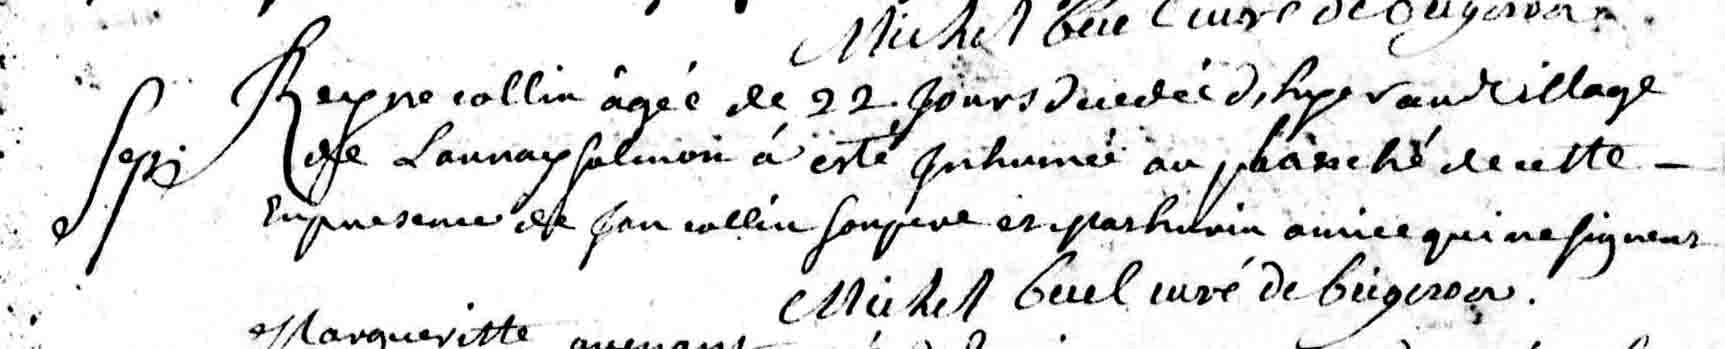 Michel buel curé de beigeron.
Reyne collin âgée de 22. Jours decedée d'hyer au village
Sep. de Launay salmon à esté Inhumée au placiche de cette
En presence de Jan collin son pere et Mathurin amice qui ne signent
Michel buel curé de beigeron.
Margueritte